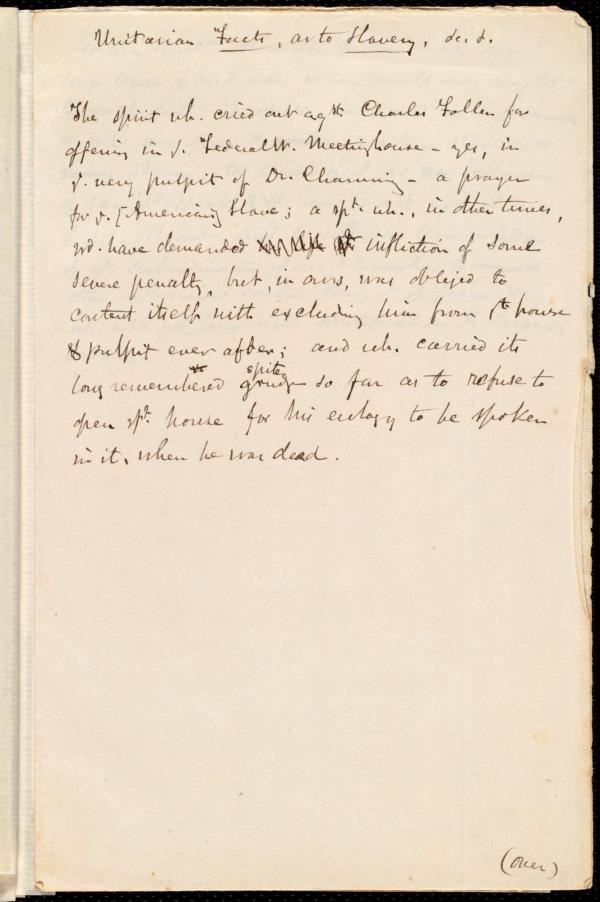 Unitarian Facts, as to Slavery, &c. &.
The spirit wh. cried out agst. Charles Follen for
offering in ye. Federal St. Meetinghouse – yes, in
ye. very pulpit of Dr. Channing – a prayer
for ye. [American] Slave; a spt. wh., in other times,
wd. have demanded infliction of some
severe penalty, but, in ours, was obliged to
content itself with excluding him from yt. house
& pulpit ever after; and wh. carried its
spite
long remembered grudge so far as to refuse to
open yt. house for his eulogy to be spoken
in it, when he was dead.
(over)